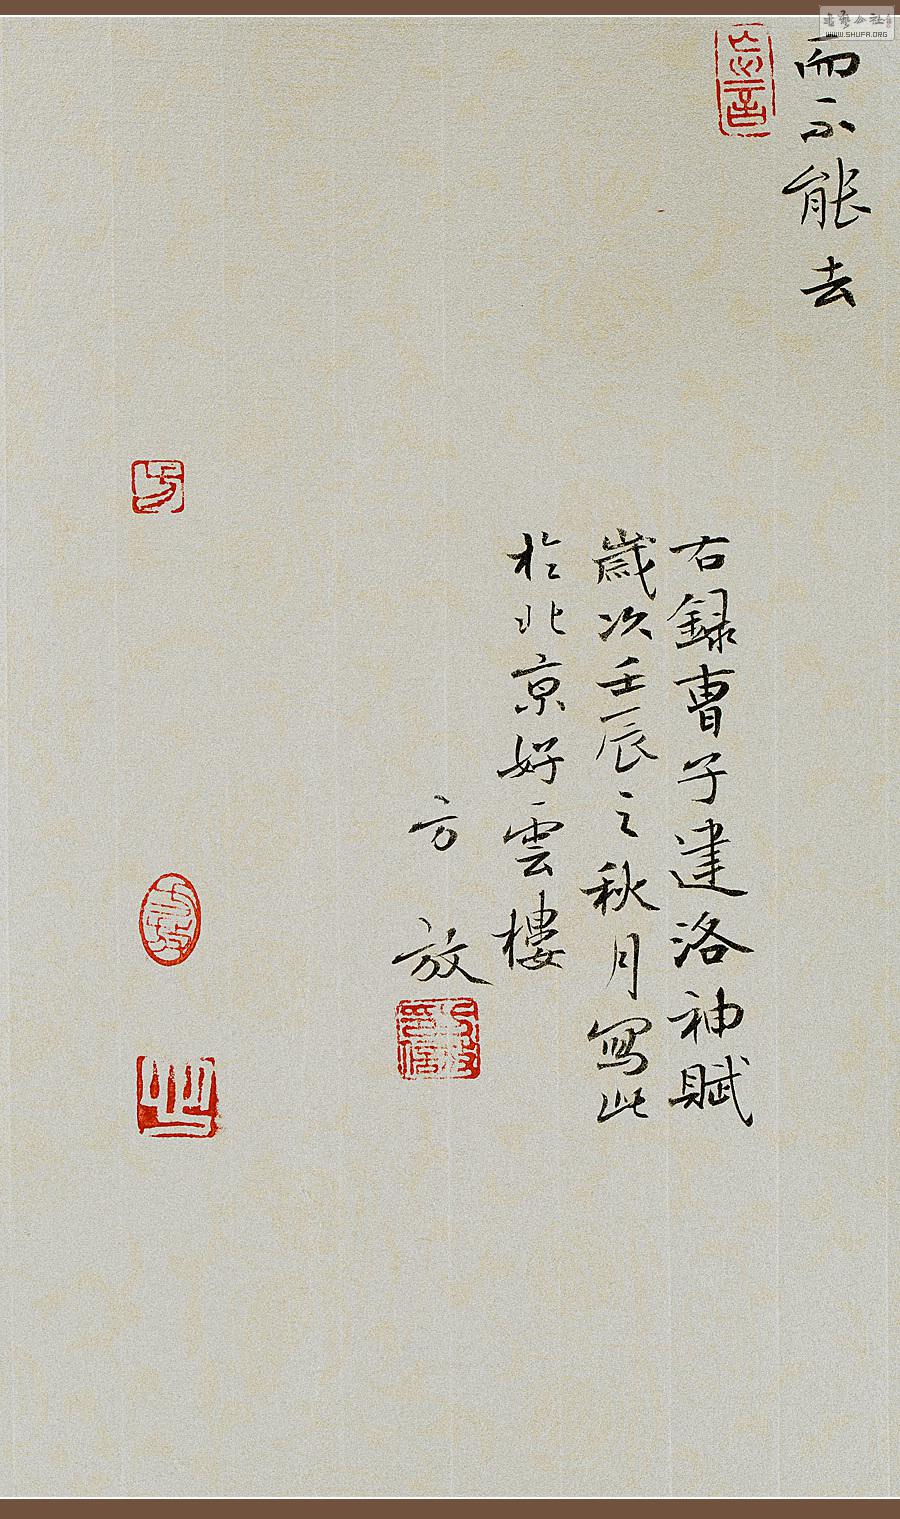 而不能去
右録曹子建洛神賦
歲次壬辰之秋月寫此
於北京好雲樓
方放
忘言
WWW.SHUFA.ORG